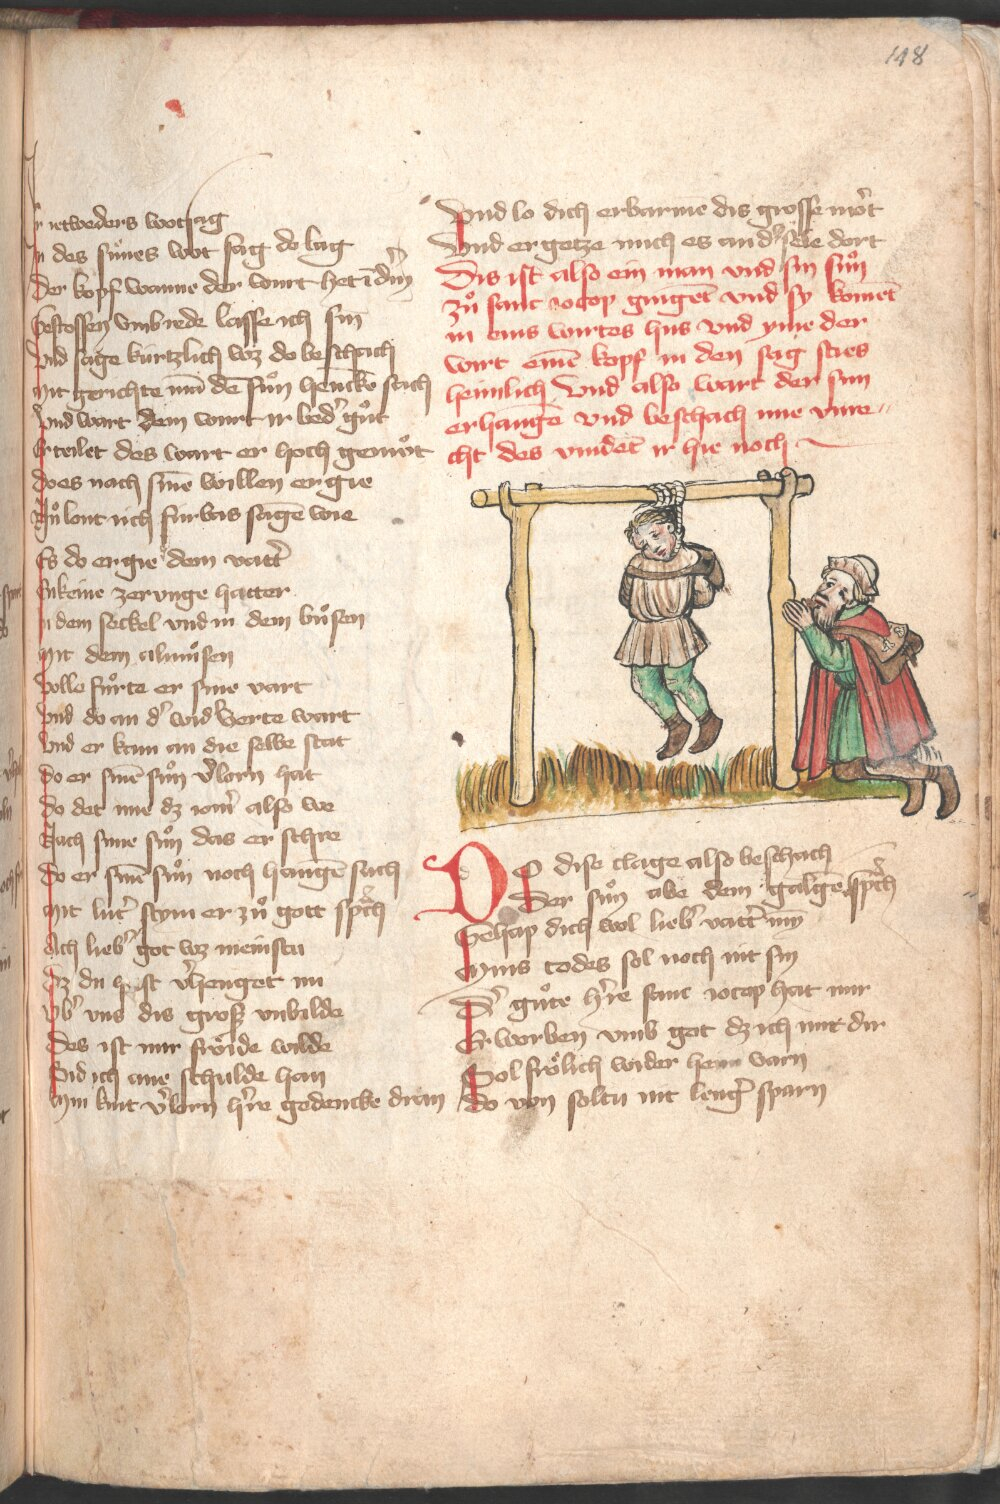 148
Ir ietweders wotsag
In des suͦnes wot sag do lag
Der kopf wanne der wirt het i dn̄
Gestossen vmb rede lasse ich sin
Vnd sage kürtzlich wz do beschach
Mit gerichte mā dē suͦn hencke sach
Vnd wart dem wirt ir beder guͦt
Erteilet des wart er hoch gemuͦt
Do es nach sinē willen ergie
Nuͦ lont üch fürbas sagē wie
Es do ergie dem vatter
Enkeine zerunge hatter
In dem seckel vnd in dem buͦsen
Mit dem almuͦsen
Volle fuͦrte er sine vart
Vnd do an dˢ widˢ verte wart
Vnd er kam an die selbe stat
Do er sinē suͦn vˢlorn hat
Do det ime dz iomˢ also we
Nach sime suͦn das er schre
Do er sinē suͦn noch hangē sach
Mit lutˢ stym er zuͦ gott sprach
Ach liebˢ got wz meinstu
Dz du hast vˢhenget nu
Vbˢ vns dis gros vnbilde
Des ist mir froͤide wilde
Sid ich ane schulde han
Min kint vˢlorn hˢre gedencke dran
Vnd lo dich erbarme dis grosse mort
Vnd ergetze mich es an dˢ sele dort
Dis ist also ein man vnd sin suͦn
zuͦ sant iocop gingēt vnd sy komēt
in eins wirtes hus vnd yme der
wirt einē kopf in den sag sties
heimlich Vnd also wart der sun
erhangē vnd beschach ime vnre
cht des vindēt ir hie noch
DO dise clage also beschach
Der suͦn abe dem galgē sprach
Gehap dich wol liebˢ vattˢ min
Mins todes sol noch nit sin
Dˢ guͦte hˢre sant iocop hat mir
Erworben vmb got dz ich mit dir
Sol froͤlich wider hein varn
Do von soltu nit lengˢ sparn